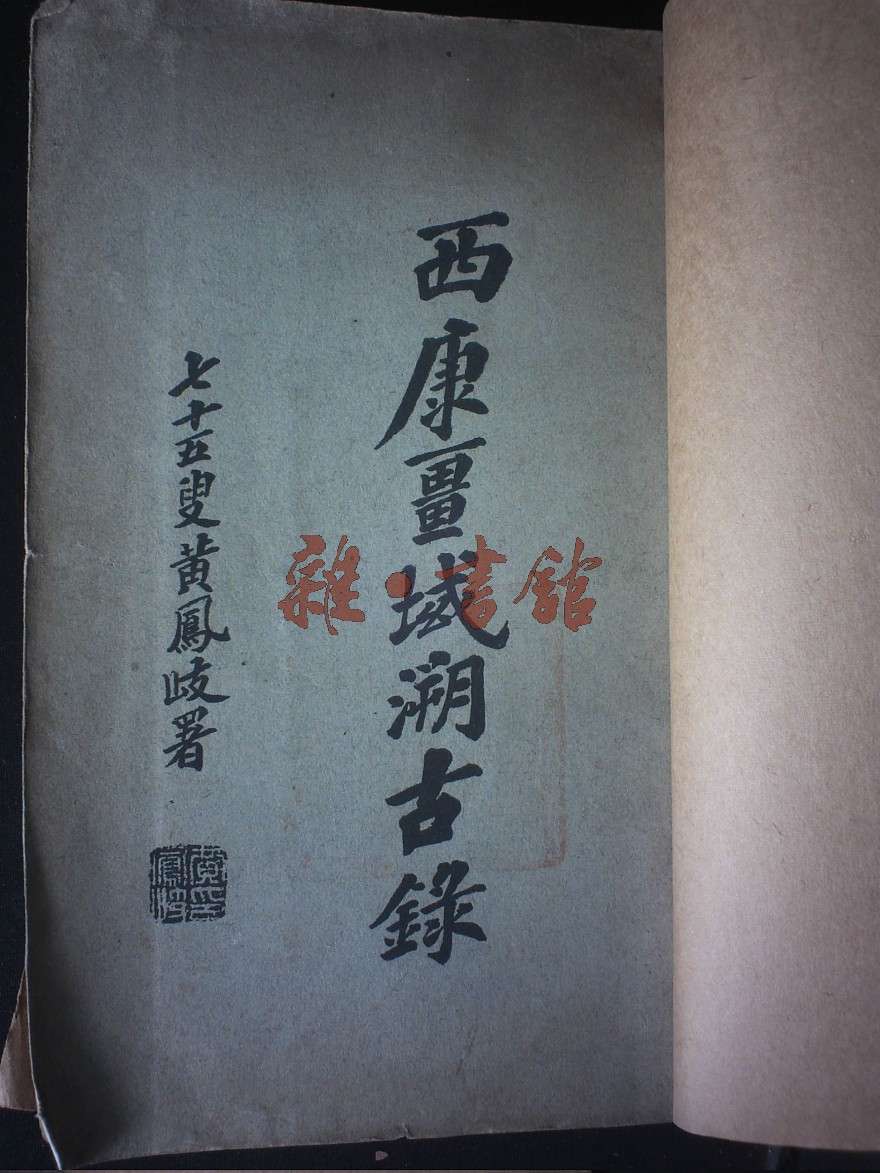 西康畺域溯古錄
七十五叟黃鳳岐署
雜·書館